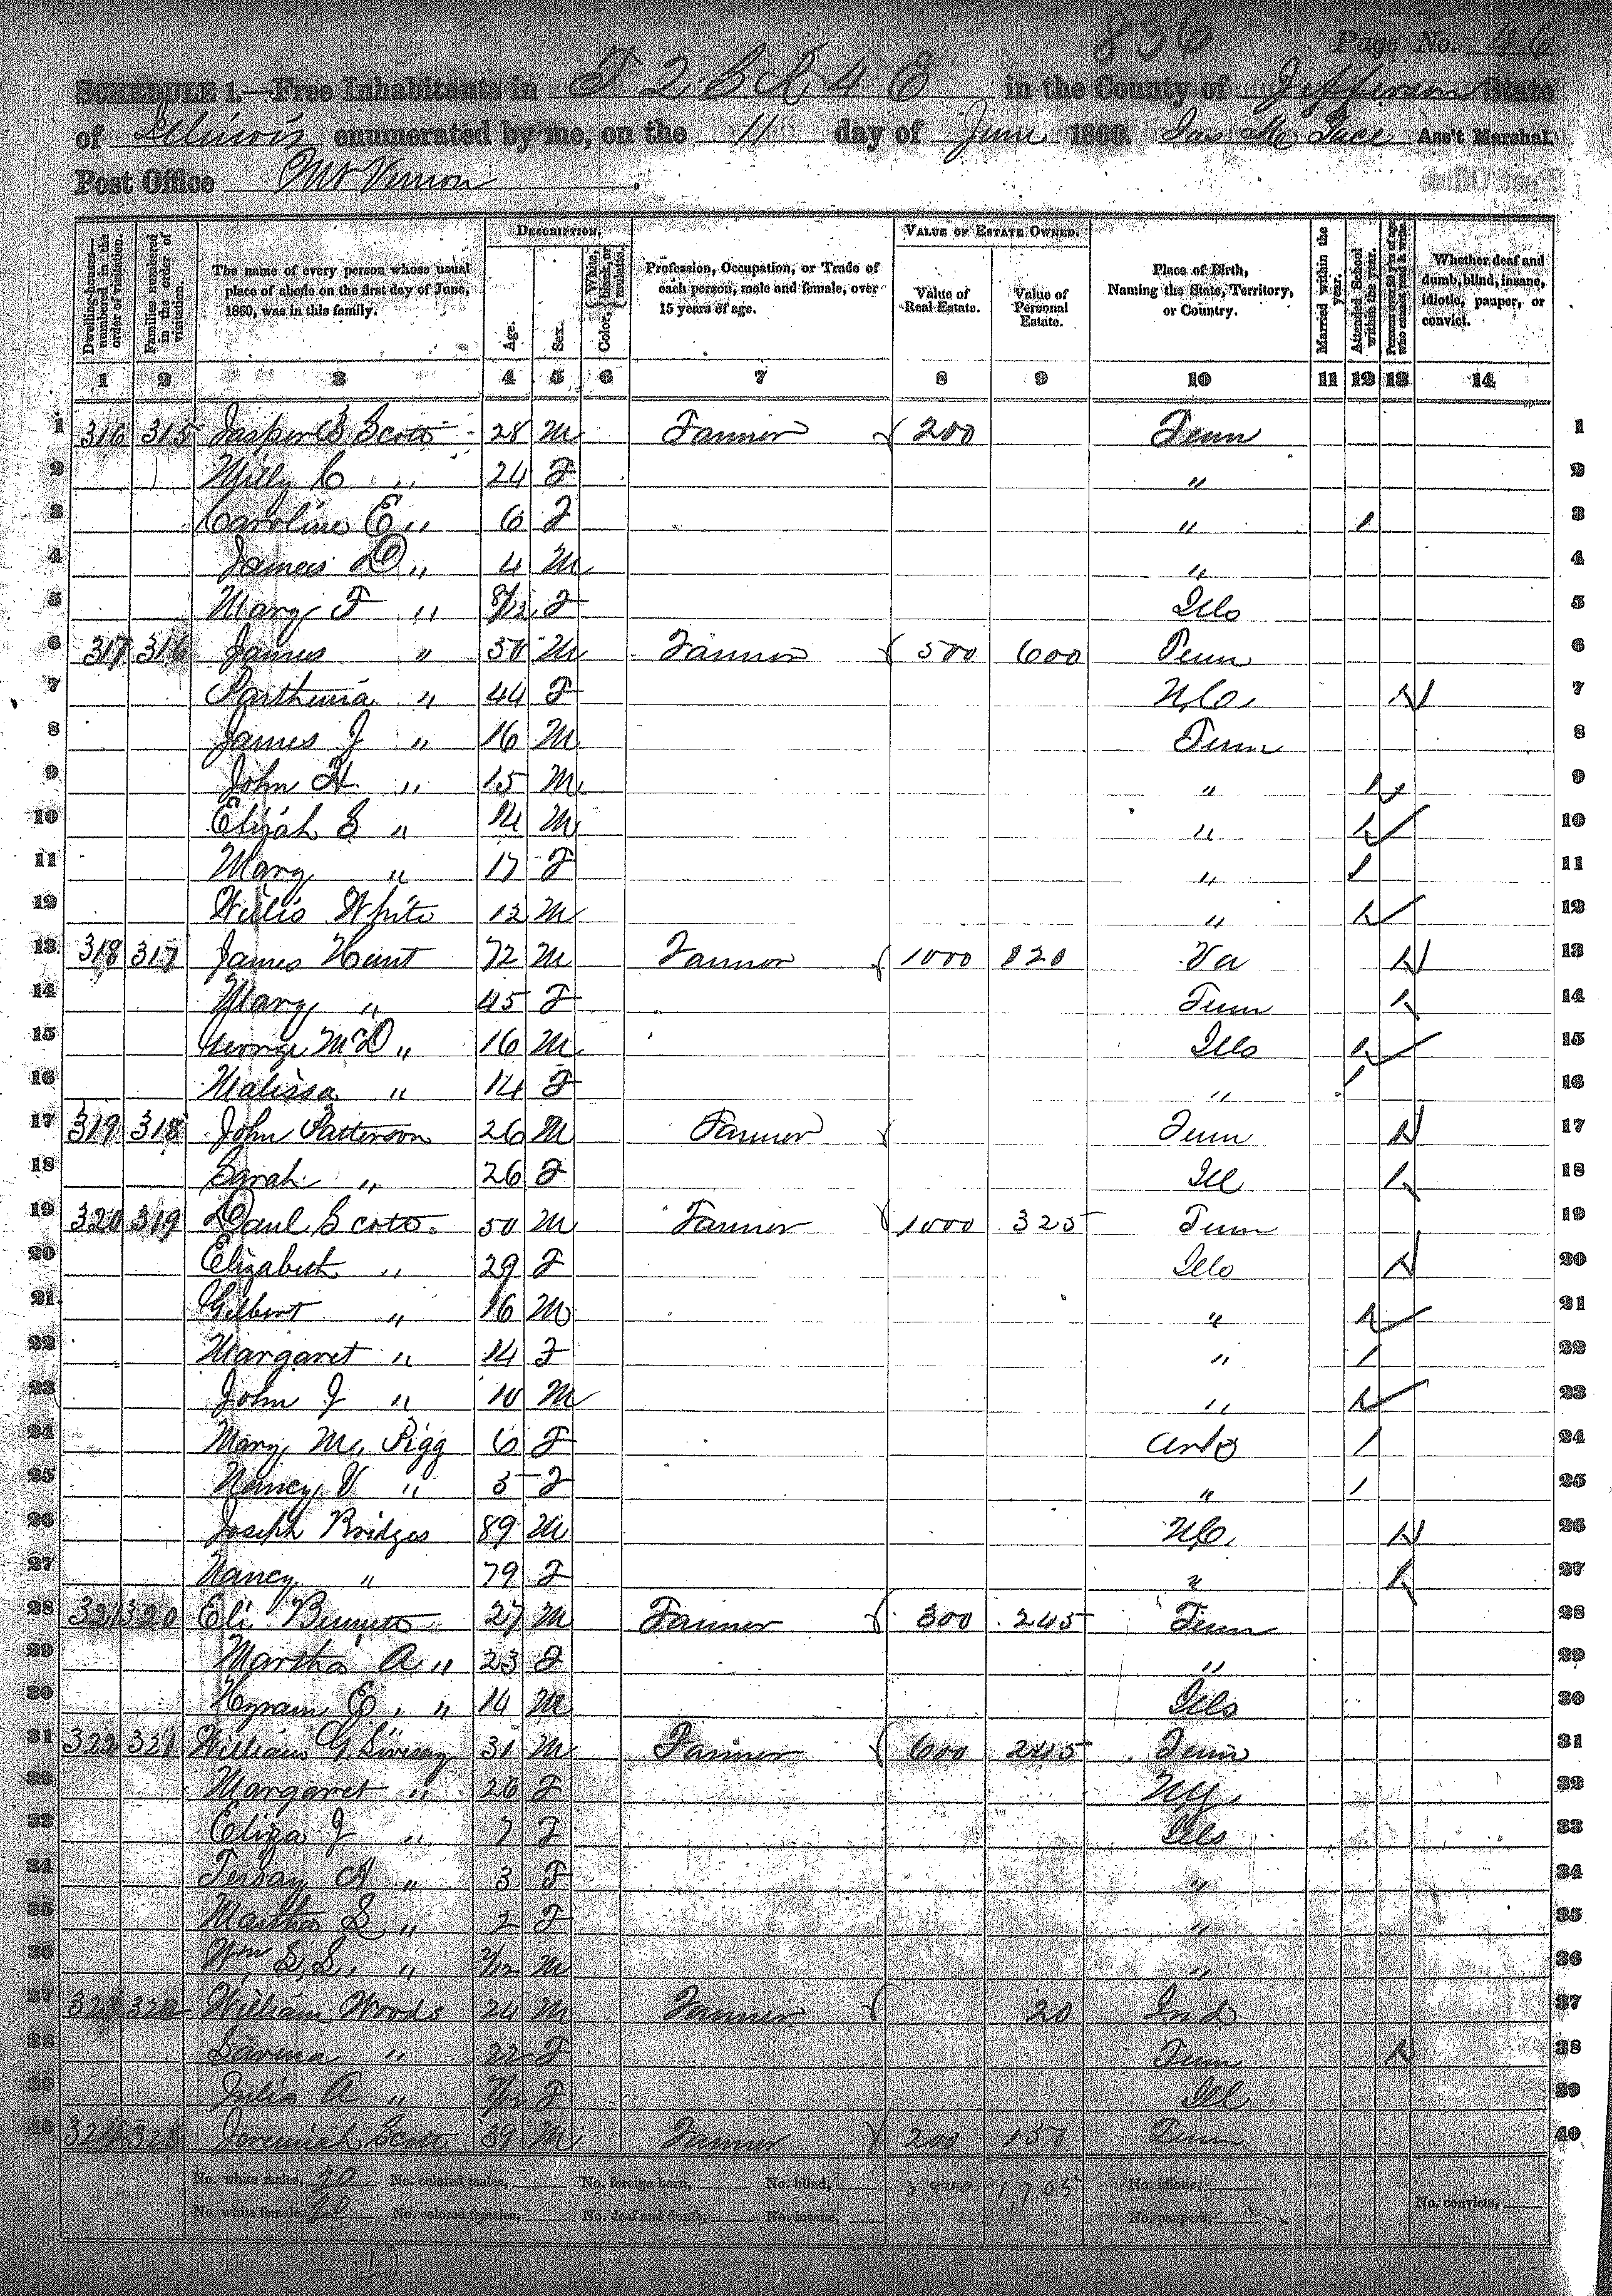 836 Page No. 46
SCHEDULE 1.—Free Inhabitants in T 2 S R 4 E in the County of Jefferson State
of Illinois enumerated by me, on the 11 day of June 1860. Ass't Marshal.
Post Office Mt Vernon
Dwelling-houses—numbered in the order of visitation.
Families numbered in the order of visitation.
The name of every person whose usual place of abode on the first day of June, 1860, was in this family.
DESCRIPTION.
Age.
Sex.
Color, {White, black, or mulatto.
Profession, Occupation, or Trade of each person, male and female, over 15 years of age.
VALUE OF ESTATE OWNED.
Value of Real Estate.
Value of Personal Estate.
Place of Birth, Naming the State, Territory, or Country.
Married within the year.
Attended School within the year.
Persons over 20 y'rs of age who cannot read & write.
Whether deaf and dumb, blind, insane, idiotic, pauper, or convict.
1 2 3 4 5 6 7 8 9 10 11 12 13 14
1 316 315 Jasper Scott 28 M Farmer 200 Tenn 1
2 Milly C " 24 F " 2
3 Caroline E " 6 F " / 3
4 James D " 4 M " 4
5 Mary F " 8/12 F Ills 5
6 317 316 James " 50 M Farmer 500 600 Tenn 6
7 Parthenia " 44 F N.C. 1 7
8 James J " 16 M Tenn 8
9 John H " 15 M " 1 9
10 Elijah S " 14 M " 1 10
11 Mary " 17 F " / 11
12 Willis White 12 M " 1 12
13 318 317 James Hunt 72 M Farmer 1000 120 Va 1 13
14 Mary " 45 F Tenn 1 14
15 George McD " 16 M Ills 1 15
16 Malissa " 14 F " / 16
17 319 318 John Patterson 26 M Farmer Tenn 1 17
18 Sarah " 26 F Ill 1 18
19 320 319 Danl Scott 50 M Farmer 1000 325 Tenn 19
20 Elizabeth " 29 F Ills 1 20
21 Gilbert " 16 M " 1 21
22 Margaret " 14 F " / 22
23 John J " 10 M " 1 23
24 Mary M. Pigg 6 F / 24
25 Nancy V " 5 F " / 25
26 Joseph Bridges 89 M N.C. 1 26
27 Nancy " 79 F " 1 27
28 321 320 Eli Bennett 27 M Farmer 300 245 Tenn 28
29 Martha A " 23 F " 29
30 Hyram E. " 14 M Ills 30
31 322 321 William G. Livesay 31 M Farmer 600 245 Tenn 31
32 Margaret " 26 F 32
33 Eliza J " 7 F Ills 33
34 A " 3 F " 34
35 Martha S " 2 F " 35
36 Wm. S.S. " 2/12 M " 36
37 323 322 William Woods 24 M Farmer 20 Ind 37
38 Lavina " 22 F Tenn 1 38
39 Julia A " 7/12 F Ill 39
40 324 323 Jeremiah Scott 39 M Farmer 200 150 Tenn 40
No. white males, 20 No. colored males, No. foreign born, No. blind, 3800 1,705 No. idiotic,
No. white females, 20 No. colored females, No. deaf and dumb, No. insane, No. paupers, No. convicts,
40